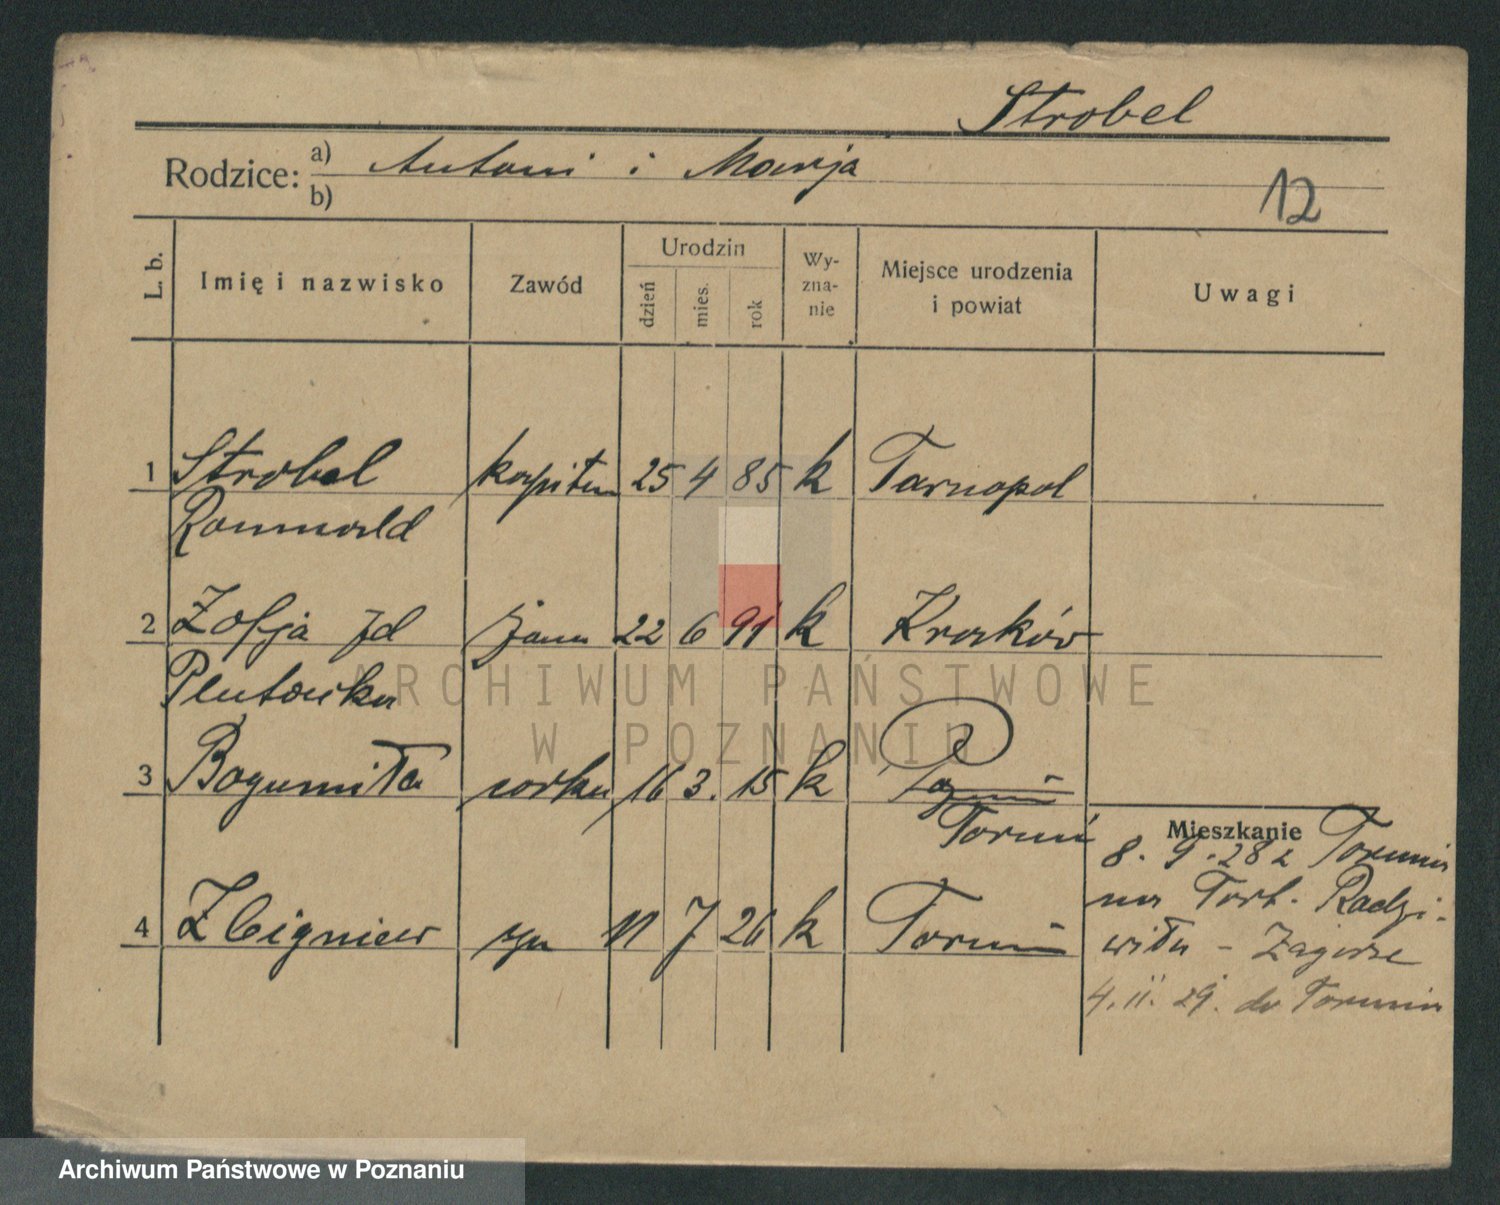 Strobel
Rodzice: a) Antoni i Marja
b)
12
L. b. Imię i nazwisko Zawód Urodzin dzień mies. rok Wy-zna-nie Miejsce urodzenia i powiat Uwagi
1 Strobel kapitan 25 4 85 k Tarnopol
Romuald
2 Zofja żona 22 6 91 k Kraków
3 Bogumiła córka 16 3. 15 k Poznań
Toruń
Mieszkanie
8. 9. 28 z Torunia
na Fort. Radzi-
wiłła - Zagórze
4 Zbigniew syn 11 7 26 k Toruń
4. II. 29. do Torunia
ARCHIWUM PAŃSTWOWE
W POZNANIU
Archiwum Państwowe w Poznaniu